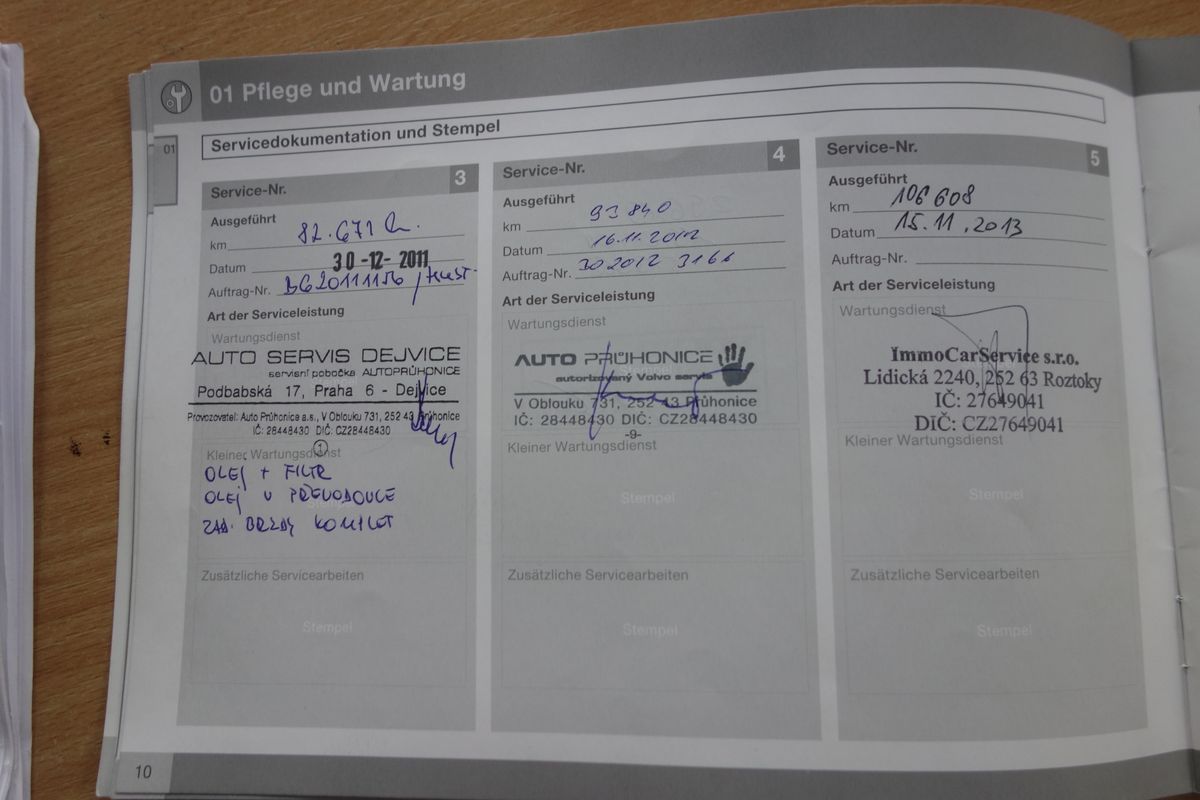 01 Pflege und Wartung
01
Servicedokumentation und Stempel
Service-Nr. 3
Ausgeführt
km 82.671
Datum 30-12-2011
Auftrag-Nr.
Art der Serviceleistung
Wartungsdienst
AUTO SERVIS DEJVICE
servisní pobočka AUTOPRŮHONICE
Podbabská 17, Praha 6 - Dejvice
Provozovatel: Auto Průhonice a.s., V Oblouku 731, 252 43 Průhonice
IČ: 28448430 DIČ: CZ28448430
1
Kleiner Wartungsdienst
OLEJ + FILTR
OLEJ V PŘEVODOVCE
ZAD. BRZDY KOMPLET
Stempel
Zusätzliche Servicearbeiten
Stempel
Service-Nr. 4
Ausgeführt
km 93 840
Datum 16.11.2012
Auftrag-Nr. 302012 3166
Art der Serviceleistung
Wartungsdienst
AUTO PRŮHONICE
autorizovaný Volvo servis
V Oblouku 731, 252 43 Průhonice
IČ: 28448430 DIČ: CZ28448430
-9-
Kleiner Wartungsdienst
Stempel
Zusätzliche Servicearbeiten
Stempel
Service-Nr. 5
Ausgeführt
km 106 608
Datum 15.11.2013
Auftrag-Nr.
Art der Serviceleistung
Wartungsdienst
ImmoCarService s.r.o.
Lidická 2240, 252 63 Roztoky
IČ: 27649041
DIČ: CZ27649041
Kleiner Wartungsdienst
Stempel
Zusätzliche Servicearbeiten
Stempel
10